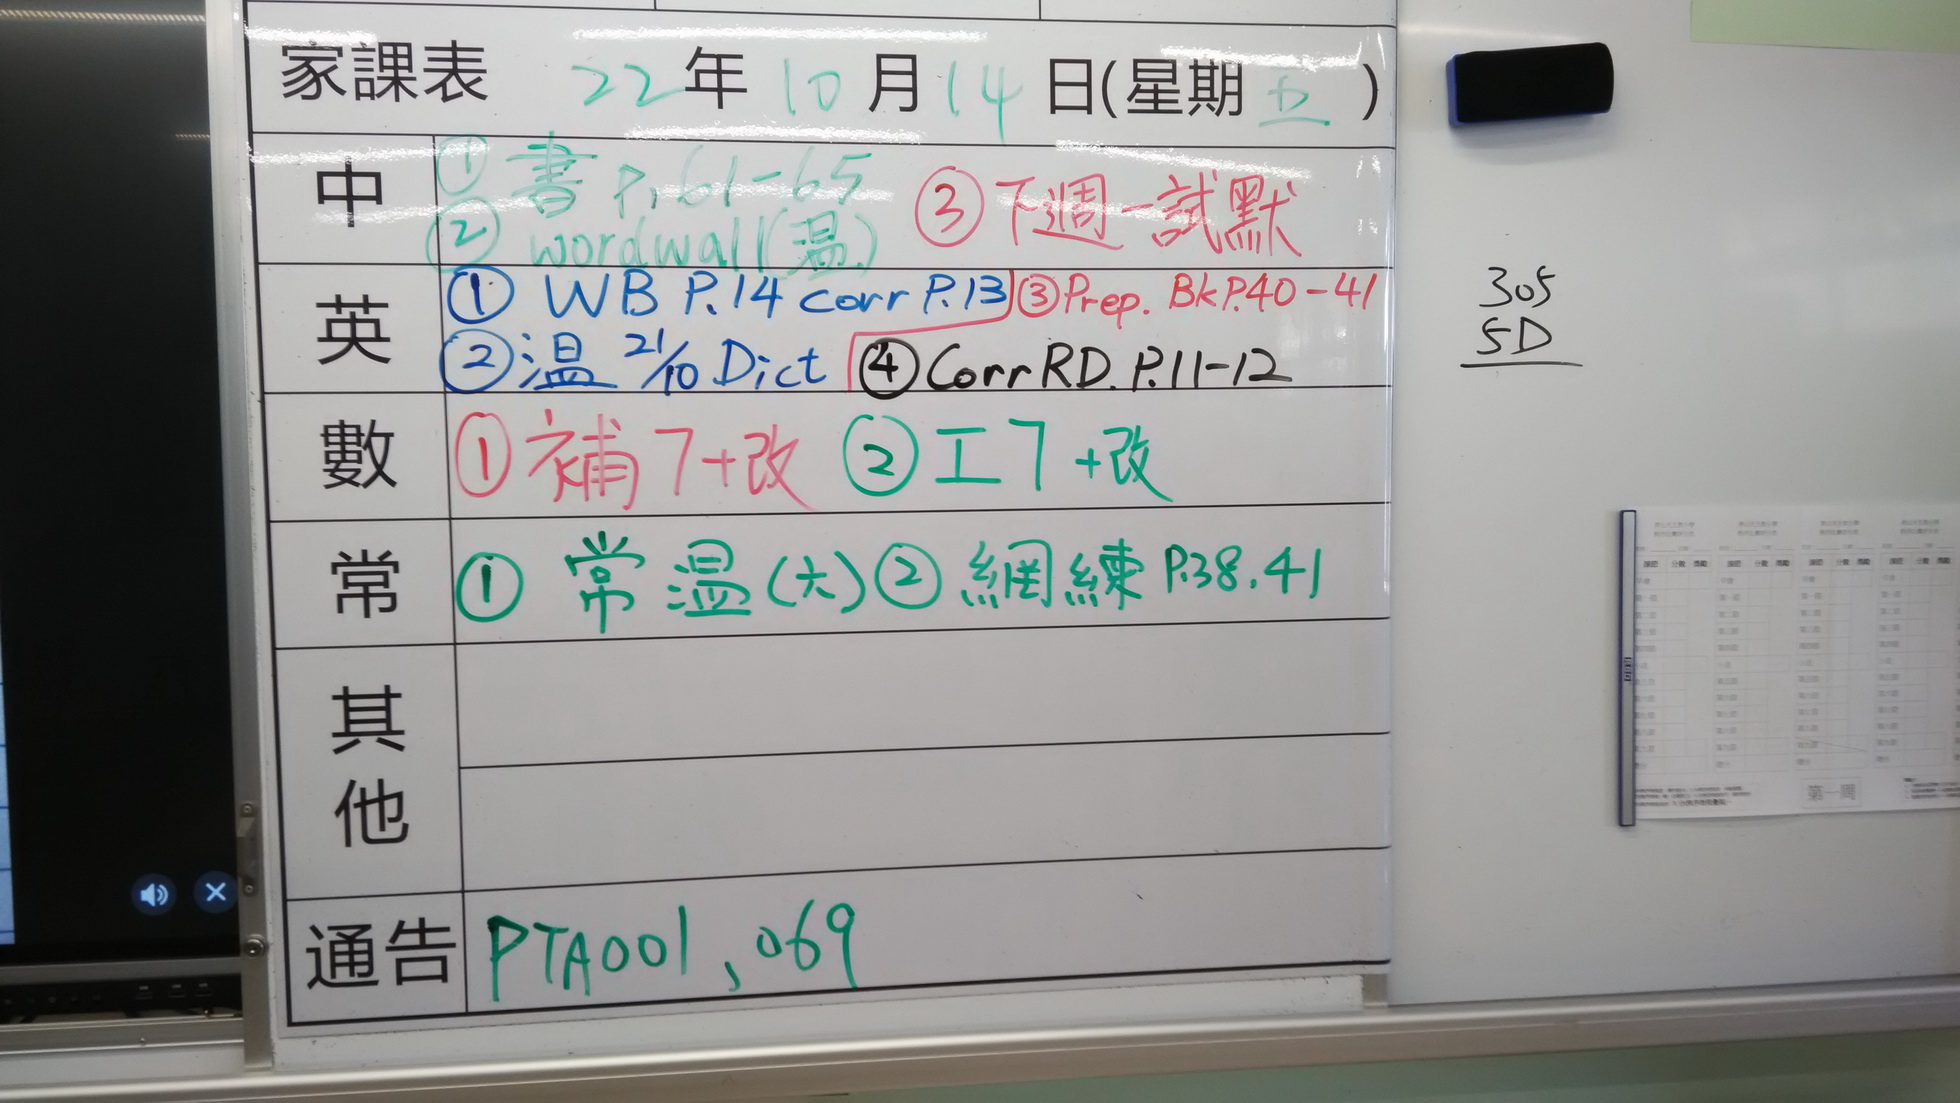 家課表 22年10月14日(星期五)
中 ① 書 P.61-65 ③ 下週一試默
② wordwall(溫)
英 ① WB P.14 corr P.13 ③ Prep. Bk P.40-41
② 溫 21/10 Dict ④ Corr RD. P.11-12
數 ① 補7+改 ② 工7+改
常 ① 常溫(大) ② 網練 P.38.41
其他
通告 PTA001, 069
305
5D
第一周